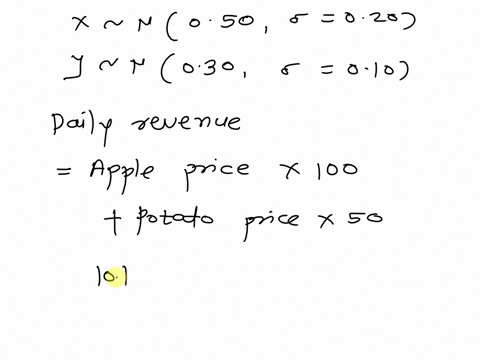 x ~ N ( 0.50, σ = 0.20)
y ~ N ( 0.30, σ = 0.10)
Daily revenue
= Apple price × 100
+ Potato price × 50
10.1